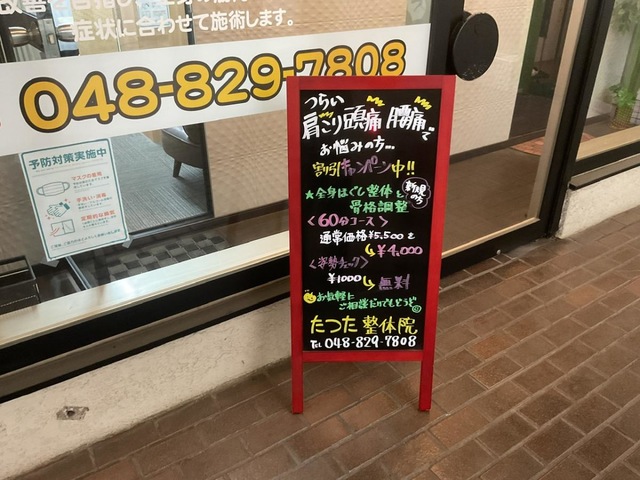 症状に合わせて施術します。
048-829-7808
予防対策実施中
マスクの着用
手洗い・消毒
定期的な換気
つらい
肩こり頭痛 腰痛で
お悩みの方...
割引キャンペーン中!!
★全身ほぐし整体と
骨格調整
新規の方
<60分コース>
通常価格¥5,500を
¥4,000
<姿勢チェック>
¥1000 無料
お気軽に
ご相談だけでもどうぞ
たつた 整体院
Tel 048-829-7808